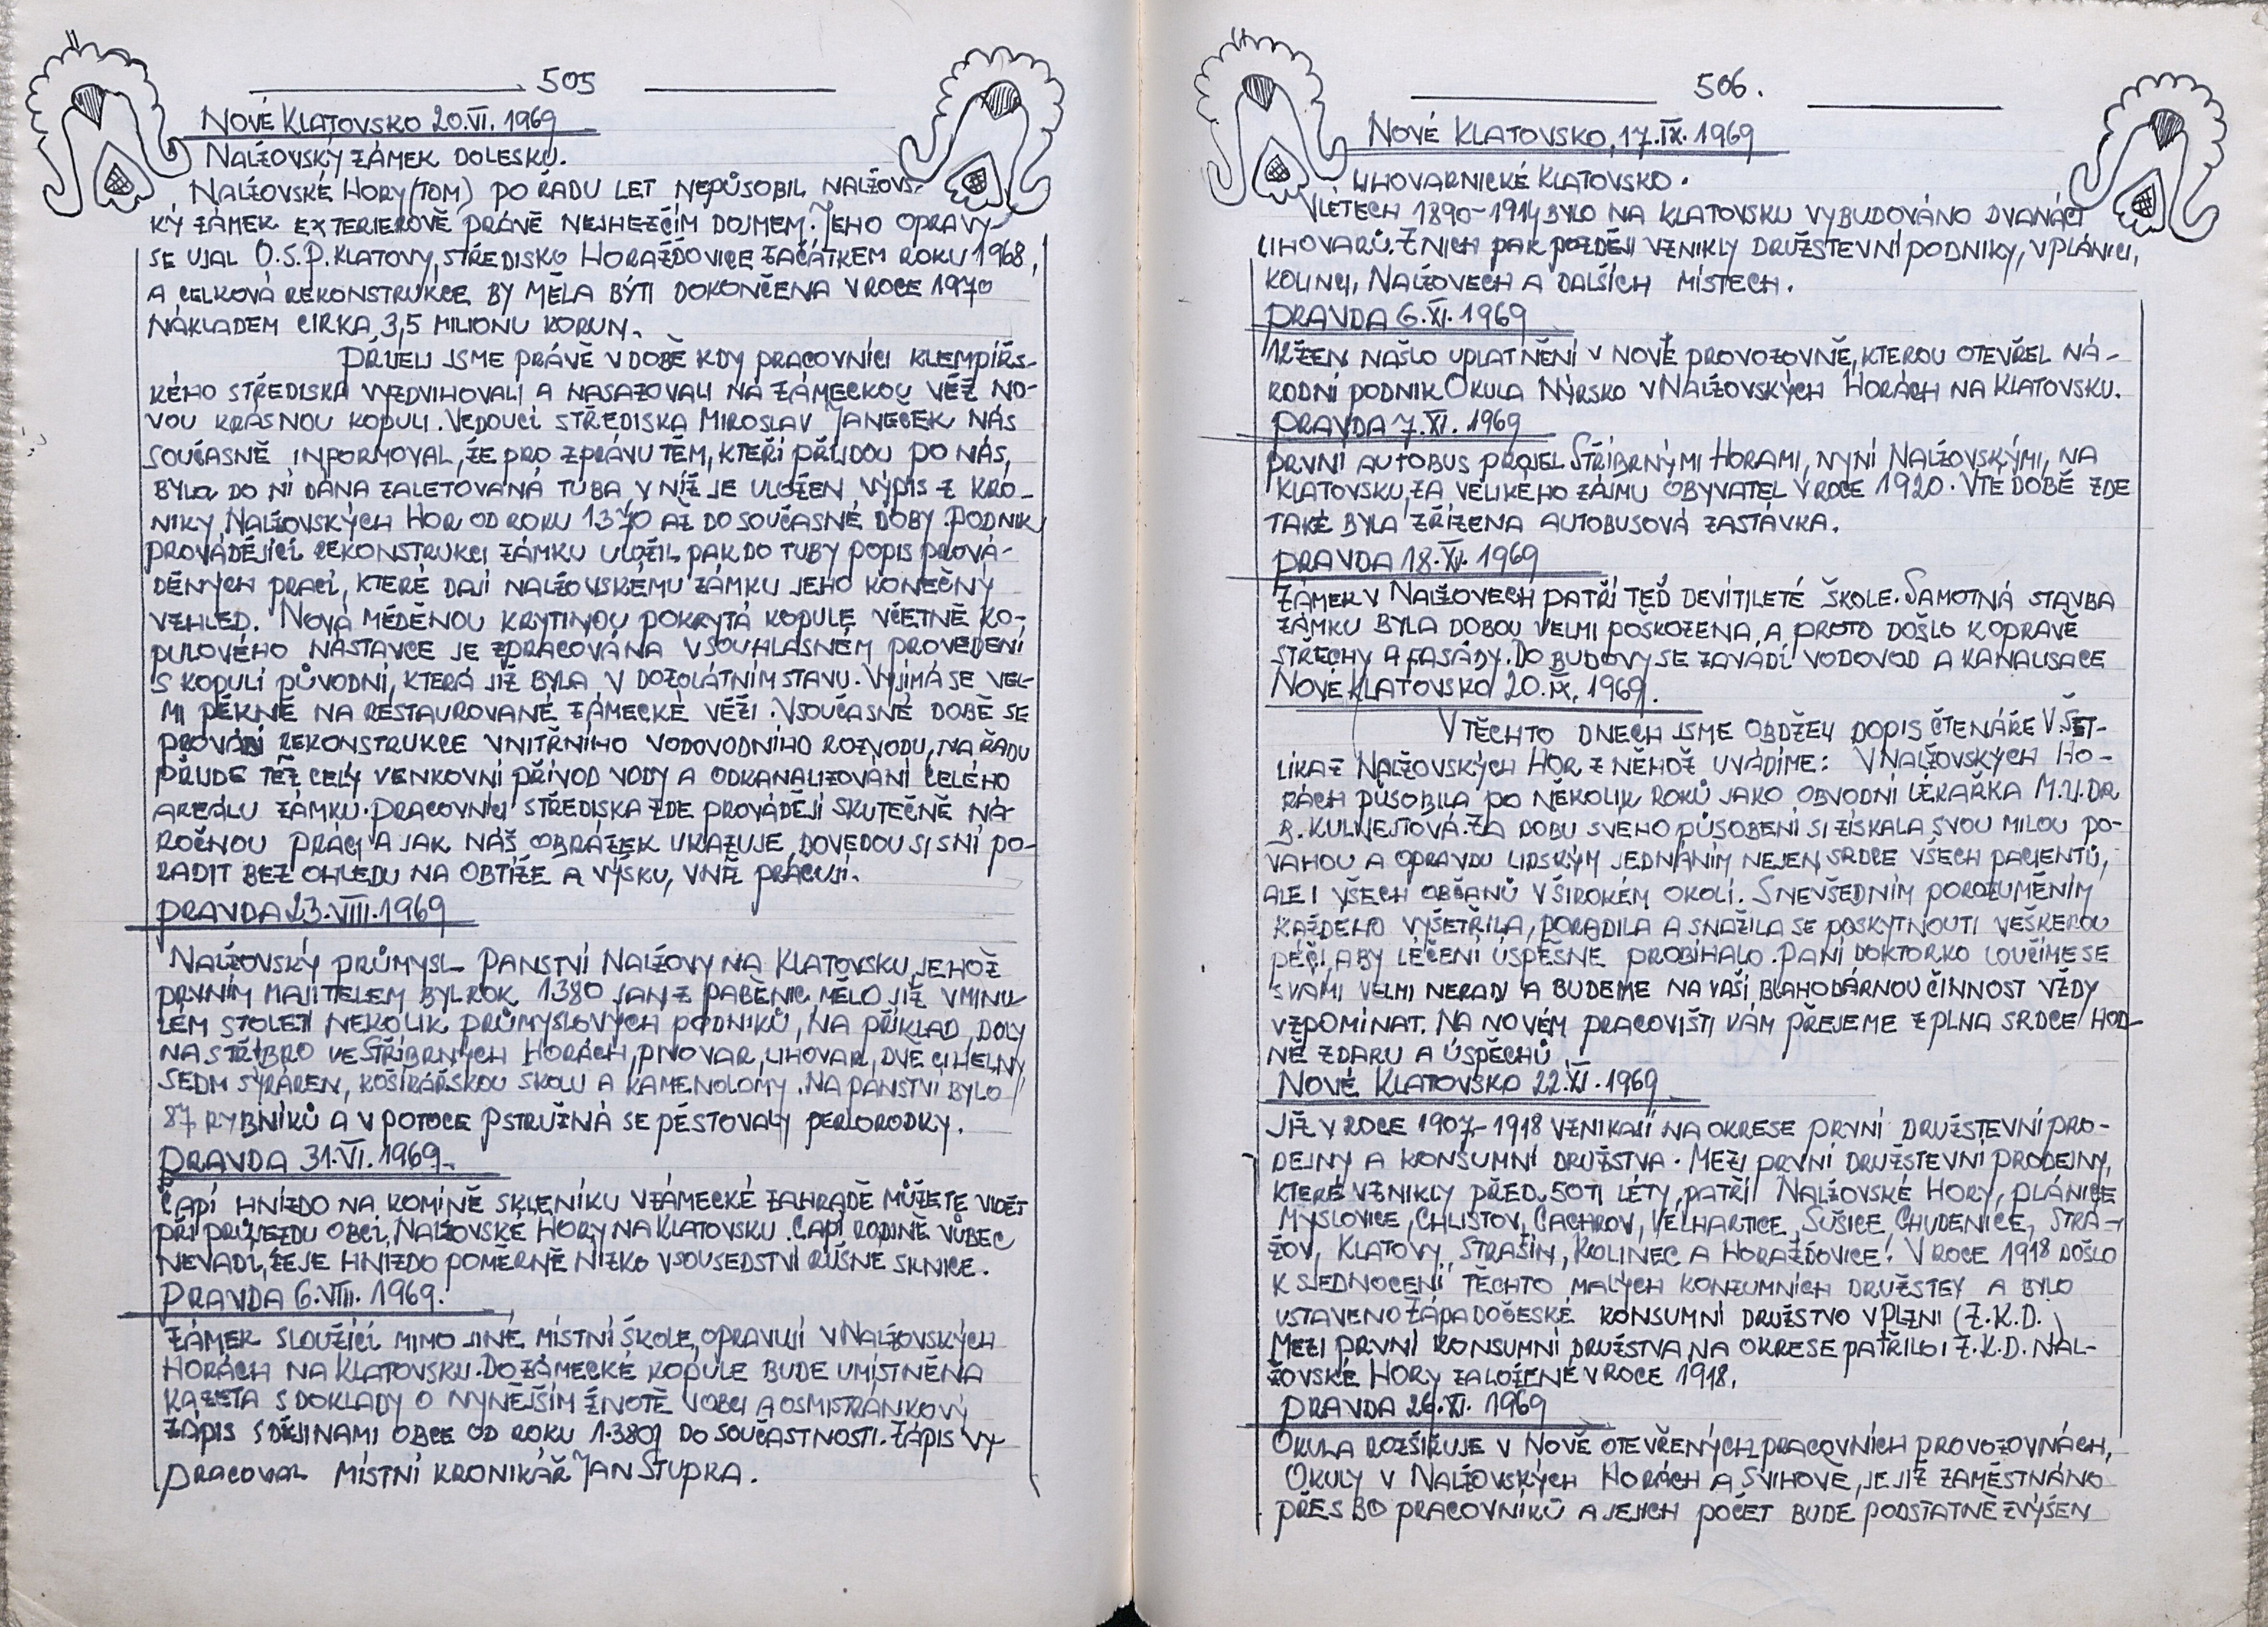 505
NOVÉ KLATOVSKO 20.VI. 1969
NALŽOVSKÝ ZÁMEK DOLESKU.
NALŽOVSKÉ HORY (TOM) PO ŘADU LET NEPŮSOBIL NALŽOVS-
KÝ ZÁMEK EXTERIEROVĚ PRÁVĚ NEJHEZČÍM DOJMEM. JEHO OPRAVY
SE UJAL O.S.P. KLATOVY, STŘEDISKO HORAŽĎOVICE ZAČÁTKEM ROKU 1968,
A CELKOVÁ REKONSTRUKCE BY MĚLA BÝTI DOKONČENA V ROCE 1970
NÁKLADEM CIRKA 3,5 MILIONU KORUN.
PŘIJELI JSME PRÁVĚ V DOBĚ KDY PRACOVNÍCI KLEMPÍŘS-
KÉHO STŘEDISKA VYZDVIHOVALI A NASAZOVALI NA ZÁMECKOU VĚŽ NO-
VOU KRÁSNOU KOPULI. VEDOUCÍ STŘEDISKA MIROSLAV JANEČEK NÁS
SOUČASNĚ INFORMOVAL, ŽE PRO ZPRÁVU TĚM, KTEŘÍ PŘIJDOU PO NÁS,
BYLA DO NÍ DÁNA ZALETOVANÁ TUBA, V NÍŽ JE ULOŽEN VÝPIS Z KRO-
NIKY NALŽOVSKÝCH HOR OD ROKU 1370 AŽ DO SOUČASNÉ DOBY. PODNIK
PROVÁDĚJÍCÍ REKONSTRUKCI ZÁMKU ULOŽIL PAK DO TUBY POPIS PROVÁ-
DĚNÝCH PRACÍ, KTERÉ DAJÍ NALŽOVSKÉMU ZÁMKU JEHO KONEČNÝ
VZHLED. NOVÁ MĚDĚNOU KRYTINOU POKRYTÁ KOPULE VČETNĚ KO-
PULOVÉHO NÁSTAVCE JE ZPRACOVÁNA V SOUHLASNÉM PROVEDENÍ
S KOPULÍ PŮVODNÍ, KTERÁ JIŽ BYLA V DOZOLÁTNÍM STAVU. VYJÍMÁ SE VEL-
MI PĚKNĚ NA RESTAUROVANÉ ZÁMECKÉ VĚŽI. V SOUČASNÉ DOBĚ SE
PROVÁDÍ REKONSTRUKCE VNITŘNÍHO VODOVODNÍHO ROZVODU, NA ŘADU
PŘIJDE TÉŽ CELÝ VENKOVNÍ PŘÍVOD VODY A ODKANALIZOVÁNÍ CELÉHO
AREÁLU ZÁMKU. PRACOVNÍCI STŘEDISKA ZDE PROVÁDĚJÍ SKUTEČNĚ NÁ-
ROČNOU PRÁCI A JAK NÁŠ OBRÁZEK UKAZUJE DOVEDOU SI S NÍ PO-
RADIT BEZ OHLEDU NA OBTÍŽE A VÝŠKU, V NÍŽ PRACUJÍ.
PRAVDA 23.VIII.1969
NALŽOVSKÝ PRŮMYSL- PANSTVÍ NALŽOVY NA KLATOVSKU, JEHOŽ
PRVNÍM MAJITELEM BYL ROK 1380 JAN Z PABĚNIC, MĚLO JIŽ V MINU-
LÉM STOLETÍ NĚKOLIK PRŮMYSLOVÝCH PODNIKŮ, NA PŘÍKLAD, DOLY
NA STŘÍBRO VE STŘÍBRNÝCH HORÁCH, PIVOVAR, LIHOVAR, DVĚ CIHELNY
SEDM SÝRÁREN, KOŠIKÁŘSKOU ŠKOLU A KAMENOLOMY. NA PANSTVÍ BYLO
87 RYBNÍKŮ A V POTOCE PSTRUŽNÁ SE PĚSTOVALY PERLORODKY.
PRAVDA 31.VI.1969.
ČAPÍ HNÍZDO NA KOMÍNĚ SKLENÍKU V ZÁMECKÉ ZAHRADĚ MŮŽETE VIDĚT
PŘI PRŮJEZDU OBCÍ, NALŽOVSKÉ HORY NA KLATOVSKU. ČAPÍ RODINĚ VŮBEC
NEVADÍ, ŽE JE HNÍZDO POMĚRNĚ NÍZKO V SOUSEDSTVÍ RUŠNÉ SILNICE.
PRAVDA 6.VIII. 1969.
ZÁMEK SLOUŽÍCÍ MIMO JINÉ MÍSTNÍ ŠKOLE, OPRAVUJÍ V NALŽOVSKÝCH
HORÁCH NA KLATOVSKU. DO ZÁMECKÉ KOPULE BUDE UMÍSTNĚNA
KAZETA S DOKLADY O NYNĚJŠÍM ŽIVOTĚ V OBCI A OSMISTRÁNKOVÝ
ZÁPIS S DĚJINAMI OBCE OD ROKU 1.380 DO SOUČASTNOSTI. ZÁPIS VY-
PRACOVAL MÍSTNÍ KRONIKÁŘ JAN STUPKA.
506.
NOVÉ KLATOVSKO, 17.IX.1969
LIHOVARNICKÉ KLATOVSKO.
V LETECH 1890-1914 BYLO NA KLATOVSKU VYBUDOVÁNO DVANÁCT
LIHOVARŮ. Z NICH PAK POZDĚJI VZNIKLY DRUŽSTEVNÍ PODNIKY, V PLÁNICI,
KOLINCI, NALŽOVECH A DALŠÍCH MÍSTECH.
PRAVDA 6.XI.1969
12 ŽEN NAŠLO UPLATNĚNÍ V NOVÉ PROVOZOVNĚ, KTEROU OTEVŘEL NÁ-
RODNÍ PODNIK OKULA NÝRSKO V NALŽOVSKÝCH HORÁCH NA KLATOVSKU.
PRAVDA 7.XI. 1969
PRVNÍ AUTOBUS PROJEL STŘÍBRNÝMI HORAMI, NYNÍ NALŽOVSKÝMI, NA
KLATOVSKU, ZA VELIKÉHO ZÁJMU OBYVATEL V ROCE 1920. V TÉ DOBĚ ZDE
TAKÉ BYLA ZŘÍZENA AUTOBUSOVÁ ZASTÁVKA.
PRAVDA 18.XI.1969
ZÁMEK V NALŽOVECH PATŘÍ TEĎ DEVÍTILETÉ ŠKOLE. SAMOTNÁ STAVBA
ZÁMKU BYLA DOBOU VELMI POŠKOZENA, A PROTO DOŠLO K OPRAVĚ
STŘECHY A FASÁDY. DO BUDOVY SE ZAVÁDÍ VODOVOD A KANALISACE
NOVÉ KLATOVSKO 20.IX.1969.
V TĚCHTO DNECH JSME OBDŽELI DOPIS ČTENÁŘE V. ŠET-
LÍKA Z NALŽOVSKÝCH HOR Z NĚHOŽ UVÁDÍME: V NALŽOVSKÝCH HO-
RÁCH PŮSOBILA PO NĚKOLIK ROKŮ JAKO OBVODNÍ LÉKAŘKA M.U.DR
B. KULVEJTOVÁ. ZA DOBU SVÉHO PŮSOBENÍ SI ZÍSKALA SVOU MILOU PO-
VAHOU A OPRAVDU LIDSKÝM JEDNÁNÍM NEJEN SRDCE VŠECH PACIENTŮ,
ALE I VŠECH OBČANŮ V ŠIROKÉM OKOLÍ. S NEVŠEDNÍM POROZUMĚNÍM
KAŽDÉHO VYŠETŘILA, PORADILA A SNAŽILA SE POSKYTNOUTI VEŠKEROU
PÉČI, ABY LÉČENÍ ÚSPĚŠNĚ PROBÍHALO. PANÍ DOKTORKO LOUČÍME SE
S VÁMI VELMI NERADI A BUDEME NA VAŠI BLAHODÁRNOU ČINNOST VŽDY
VZPOMÍNAT. NA NOVÉM PRACOVIŠTI VÁM PŘEJEME Z PLNA SRDCE HOD-
NĚ ZDARU A ÚSPĚCHŮ!
NOVÉ KLATOVSKO 22.XI.1969
JIŽ V ROCE 1907-1918 VZNIKAJÍ NA OKRESE PRVNÍ DRUŽSTEVNÍ PRO-
DEJNY A KONSUMNÍ DRUŽSTVA. MEZI PRVNÍ DRUŽSTEVNÍ PRODEJNY,
KTERÉ VZNIKLY PŘED 50TI LÉTY, PATŘÍ NALŽOVSKÉ HORY, PLÁNICE
MYSLOVICE, CHLISTOV, ČACHROV, VELHARTICE, SUŠICE, CHUDENICE, STRÁ-
ŽOV, KLATOVY, STRAŠÍN, KOLINEC A HORAŽĎOVICE. V ROCE 1918 DOŠLO
K SJEDNOCENÍ TĚCHTO MALÝCH KONZUMNÍCH DRUŽSTEV A BYLO
USTAVENO ZÁPADOČESKÉ KONSUMNÍ DRUŽSTVO V PLZNI (Z.K.D.)
MEZI PRVNÍ KONSUMNÍ DRUŽSTVA NA OKRESE PATŘILO I Z.K.D. NAL-
ŽOVSKÉ HORY ZALOŽENÉ V ROCE 1918.
PRAVDA 26.XI. 1969
OKULA ROZŠIŘUJE V NOVĚ OTEVŘENÝCH PRACOVNÍCH PROVOZOVNÁCH,
OKULY V NALŽOVSKÝCH HORÁCH A ŠVIHOVĚ, JE JIŽ ZAMĚSTNÁNO
PŘES 80 PRACOVNÍKŮ A JEJICH POČET BUDE PODSTATNĚ ZVÝŠEN